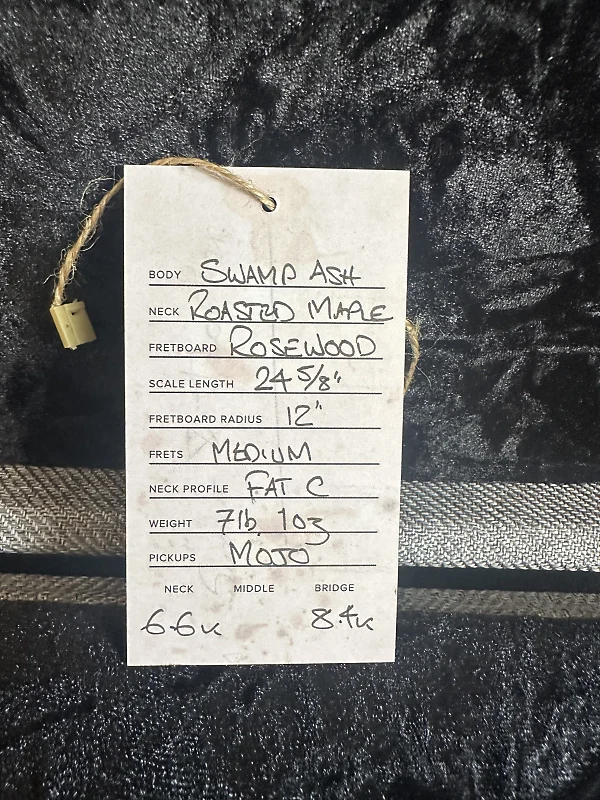 BODY SWAMP ASH
NECK ROASTED MAPLE
FRETBOARD ROSEWOOD
SCALE LENGTH 24 5/8"
FRETBOARD RADIUS 12"
FRETS MEDIUM
NECK PROFILE FAT C
WEIGHT 7lb 1oz
PICKUPS MOJO
NECK MIDDLE BRIDGE
6.6K 8.4K